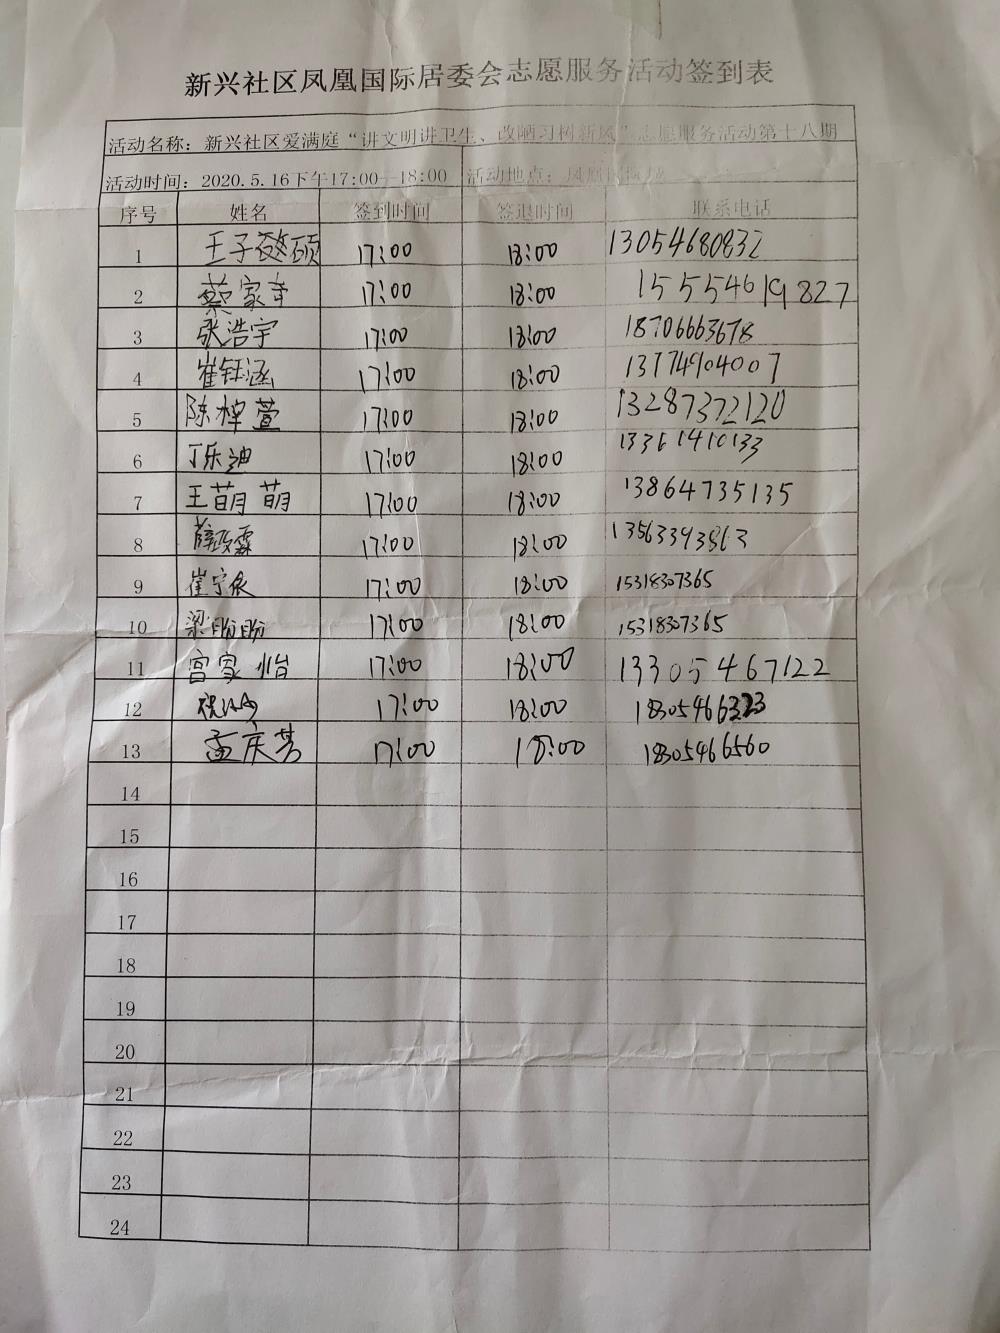 新兴社区凤凰国际居委会志愿服务活动签到表
活动名称：新兴社区爱满庭“讲文明讲卫生、改陋习树新风”志愿服务活动第十八期
活动时间：2020.5.16下午17:00—18:00 活动地点：凤凰
序号 姓名 签到时间 签退时间 联系电话
1 王子 硕 17:00 18:00 13054680832
2 蔡家 17:00 18:00 15554619827
3 张浩宇 17:00 18:00 18706663678
4 崔钰涵 17:00 18:00 13774904007
5 陈梓萱 17:00 18:00 13287372120
6 丁乐迪 17:00 18:00 13361410133
7 王萌萌 17:00 18:00 13864735135
8 薛政霖 17:00 18:00 13563393863
9 崔宁依 17:00 18:00 15318307365
10 梁盼盼 17:00 18:00 15318307365
11 宫家怡 17:00 18:00 13305467122
12 17:00 18:00 18305466323
13 孟庆芳 17:00 18:00 18305466560
14
15
16
17
18
19
20
21
22
23
24